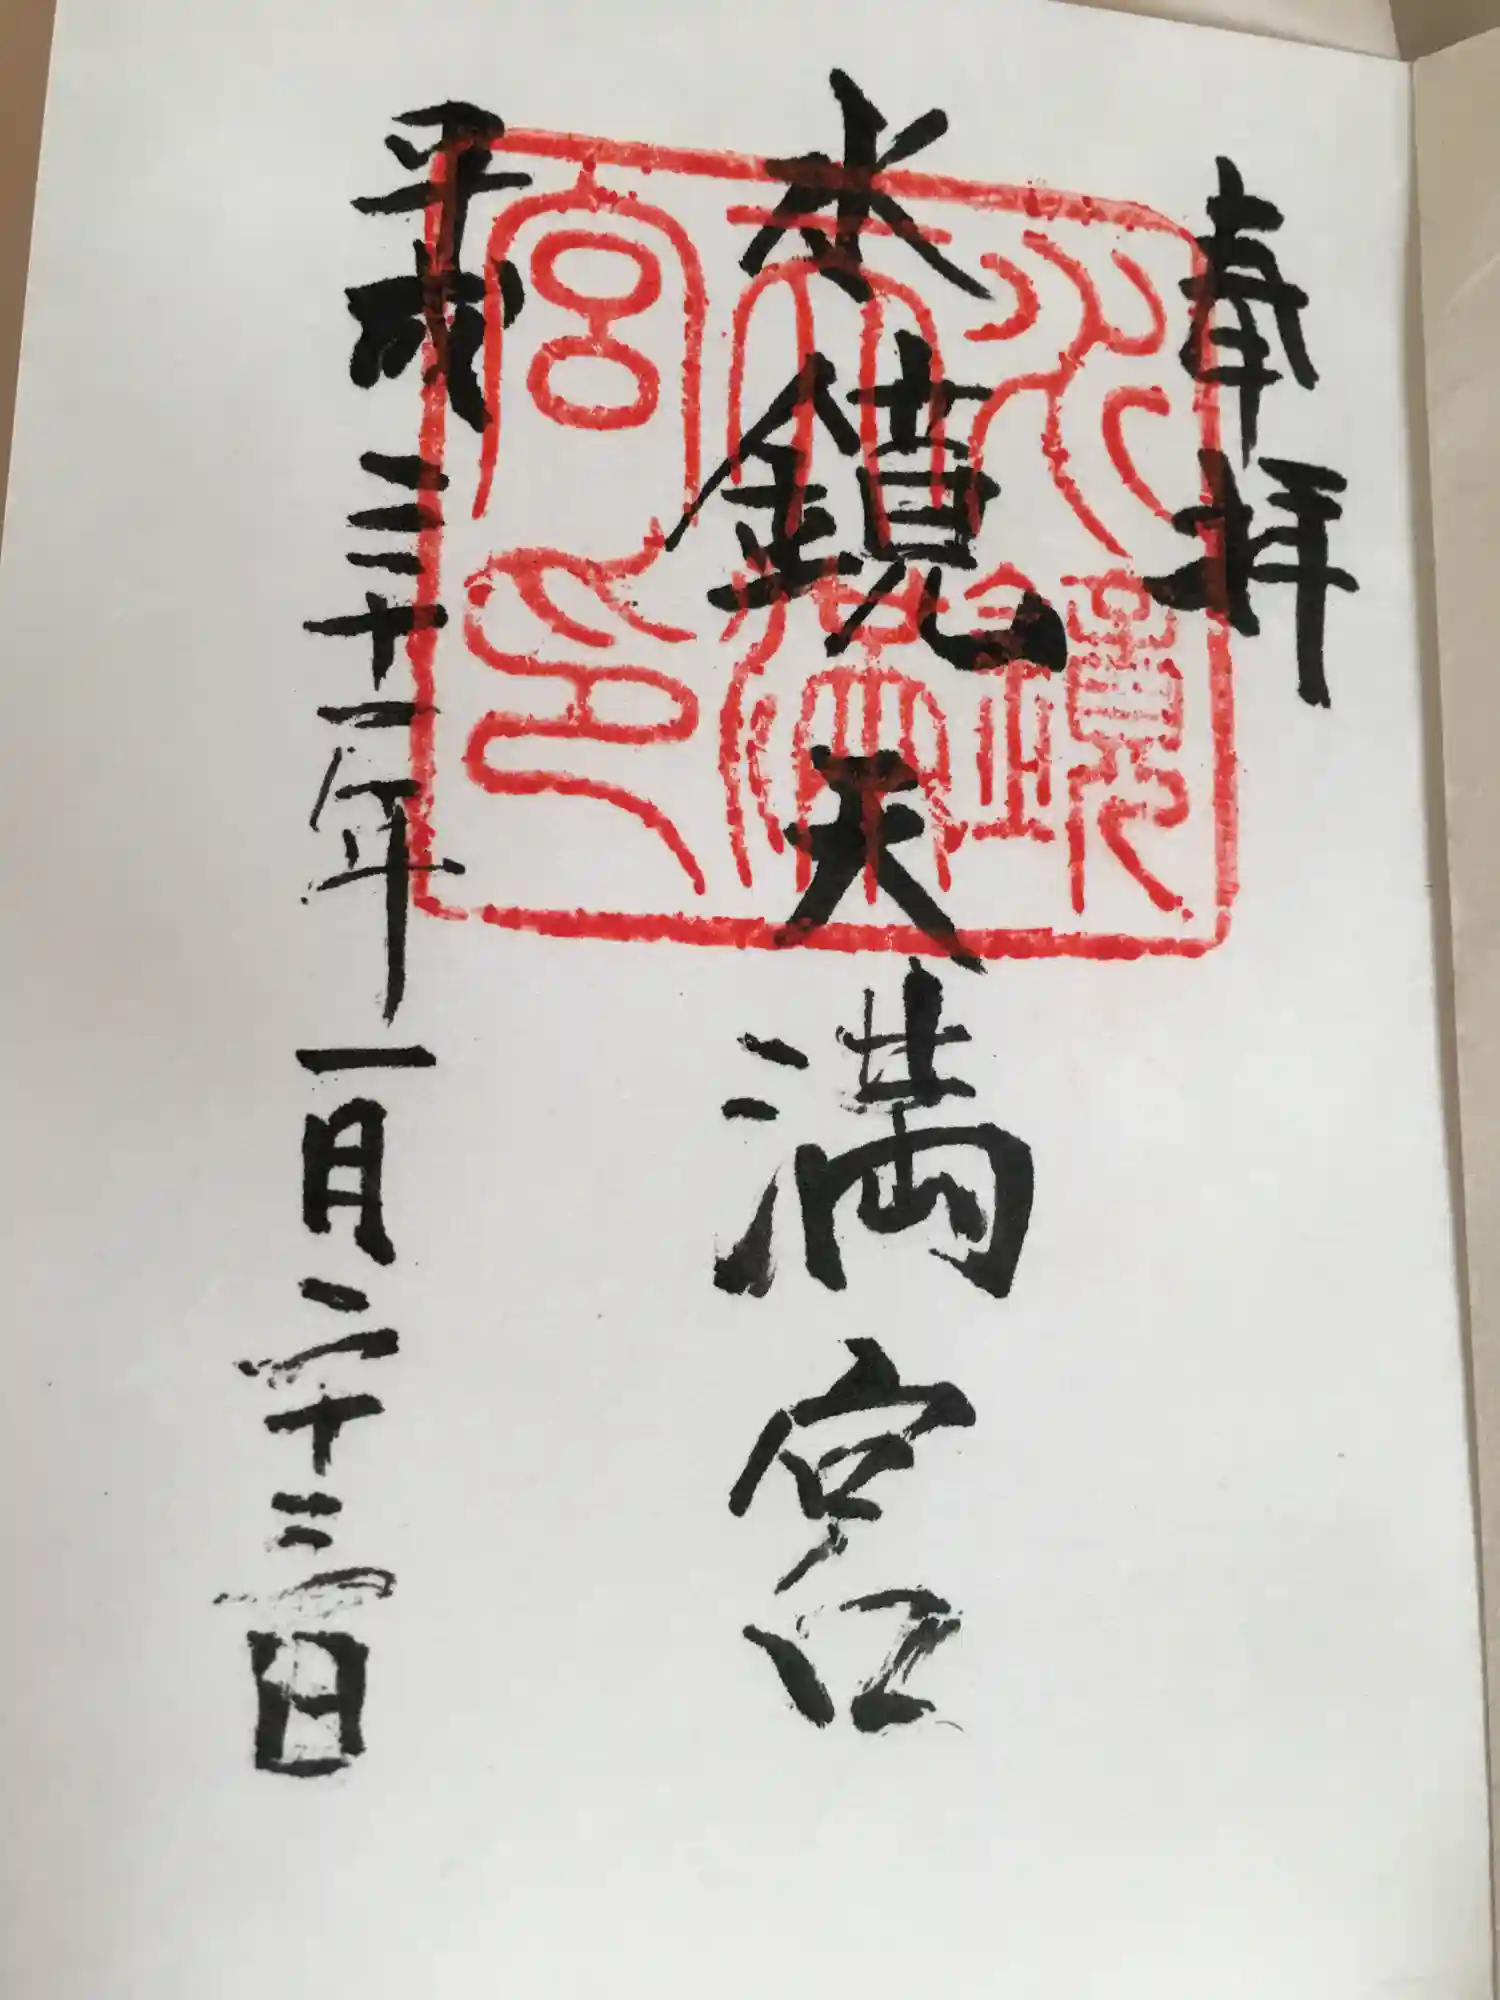 奉拝
水鏡天満宮
平成三十一年一月二十三日
水鏡天満宮印